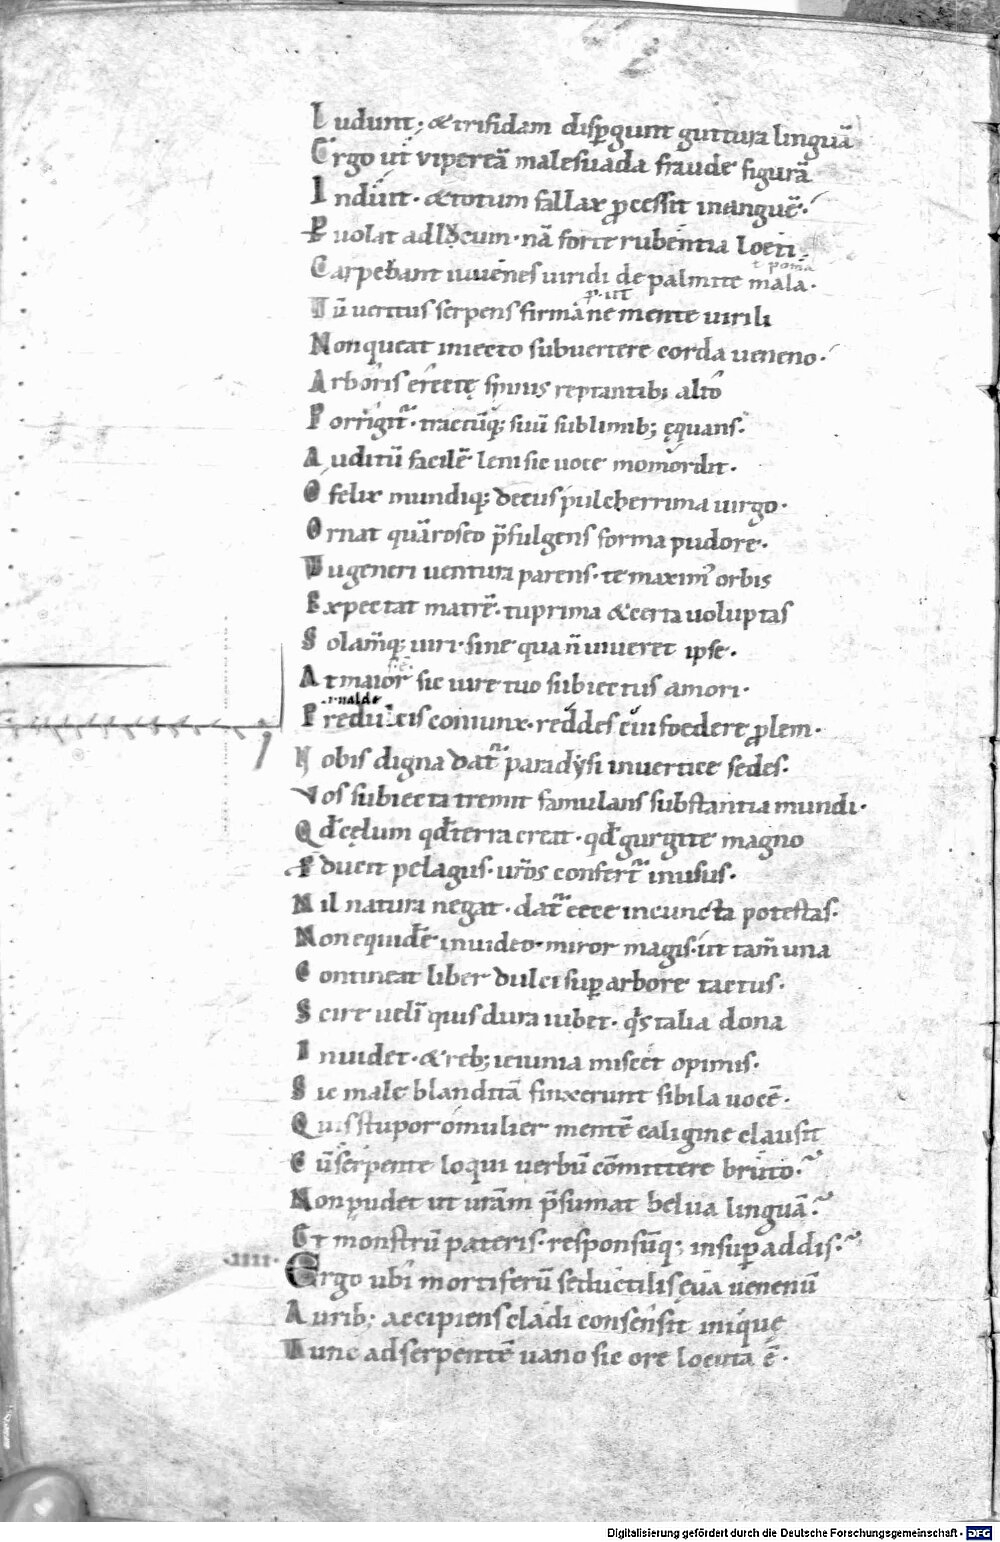 Ludunt; & trifidam disꝑgunt guttura linguā
Ergo ut vipereā malesuada fraude figurā
Induit · & totum fallax ꝓcessit inanguē·
Puolat ad locum · nā forte rubentia loeti
ł poma
Carpebant iuuenes uiridi de palmite mala·
Tū ueritus serpens firmā ne mente uirili
Non queat iniecto subuertere corda ueneno·
Arboris erectę spiris reptantib; alto
Porrigit᷑· tractūq; suū sublimib; ęquans·
Auditū facilē leni sic uoce momordit·
O felix mundiq; decus pulcherrima uirgo·
Ornat quā roseo p̄fulgens forma pudore·
Tu generi uentura parens · te maximꝰ orbis
Expectat matrē· tu prima & certa uoluptas
Solam̄q; uiri· sine qua n̄ uiueret ipse·
At maior sic iure tuo subiectus amori·
Predulcis coniunx· reddes cui foedere ꝓlem·
Nobis digna dat᷑ paradysi inuertice sedes·
Vos subiecta tremit famulans substantia mundi·
Qd̄ cęlum qd̄ terra creat· qd̄ gurgite magno
Pducit pelagus· ur̄os confert᷑ inusus·
Nil natura negat· dat᷑ ecce incuncta potestas·
Non equidē inuideo· miror magis· ut tam̄ una
Contineat liber dulci suꝑ arbore tactus·
Scire uelī quis dura iubet· qͥs talia dona
Inuidet· & reb; ieiunia miscet opimis·
Sic male blanditā finxerunt sibila uocē·
Quis stupor o mulier mentē caligine clausit
Cū serpente loqui uerbū cōmittere bruto·
Non pudet ut ur̄am p̄sumat belua linguā·
Et monstrū pateris· responsūq; insuꝑ addis·
·IIII·
Ergo ubi mortiferū seductilis eua uenenū
Aurib; accipiens cladi consensit inique
Tunc ad serpentē uano sic ore locuta ē·
Digitalisierung gefördert durch die Deutsche Forschungsgemeinschaft · DFG